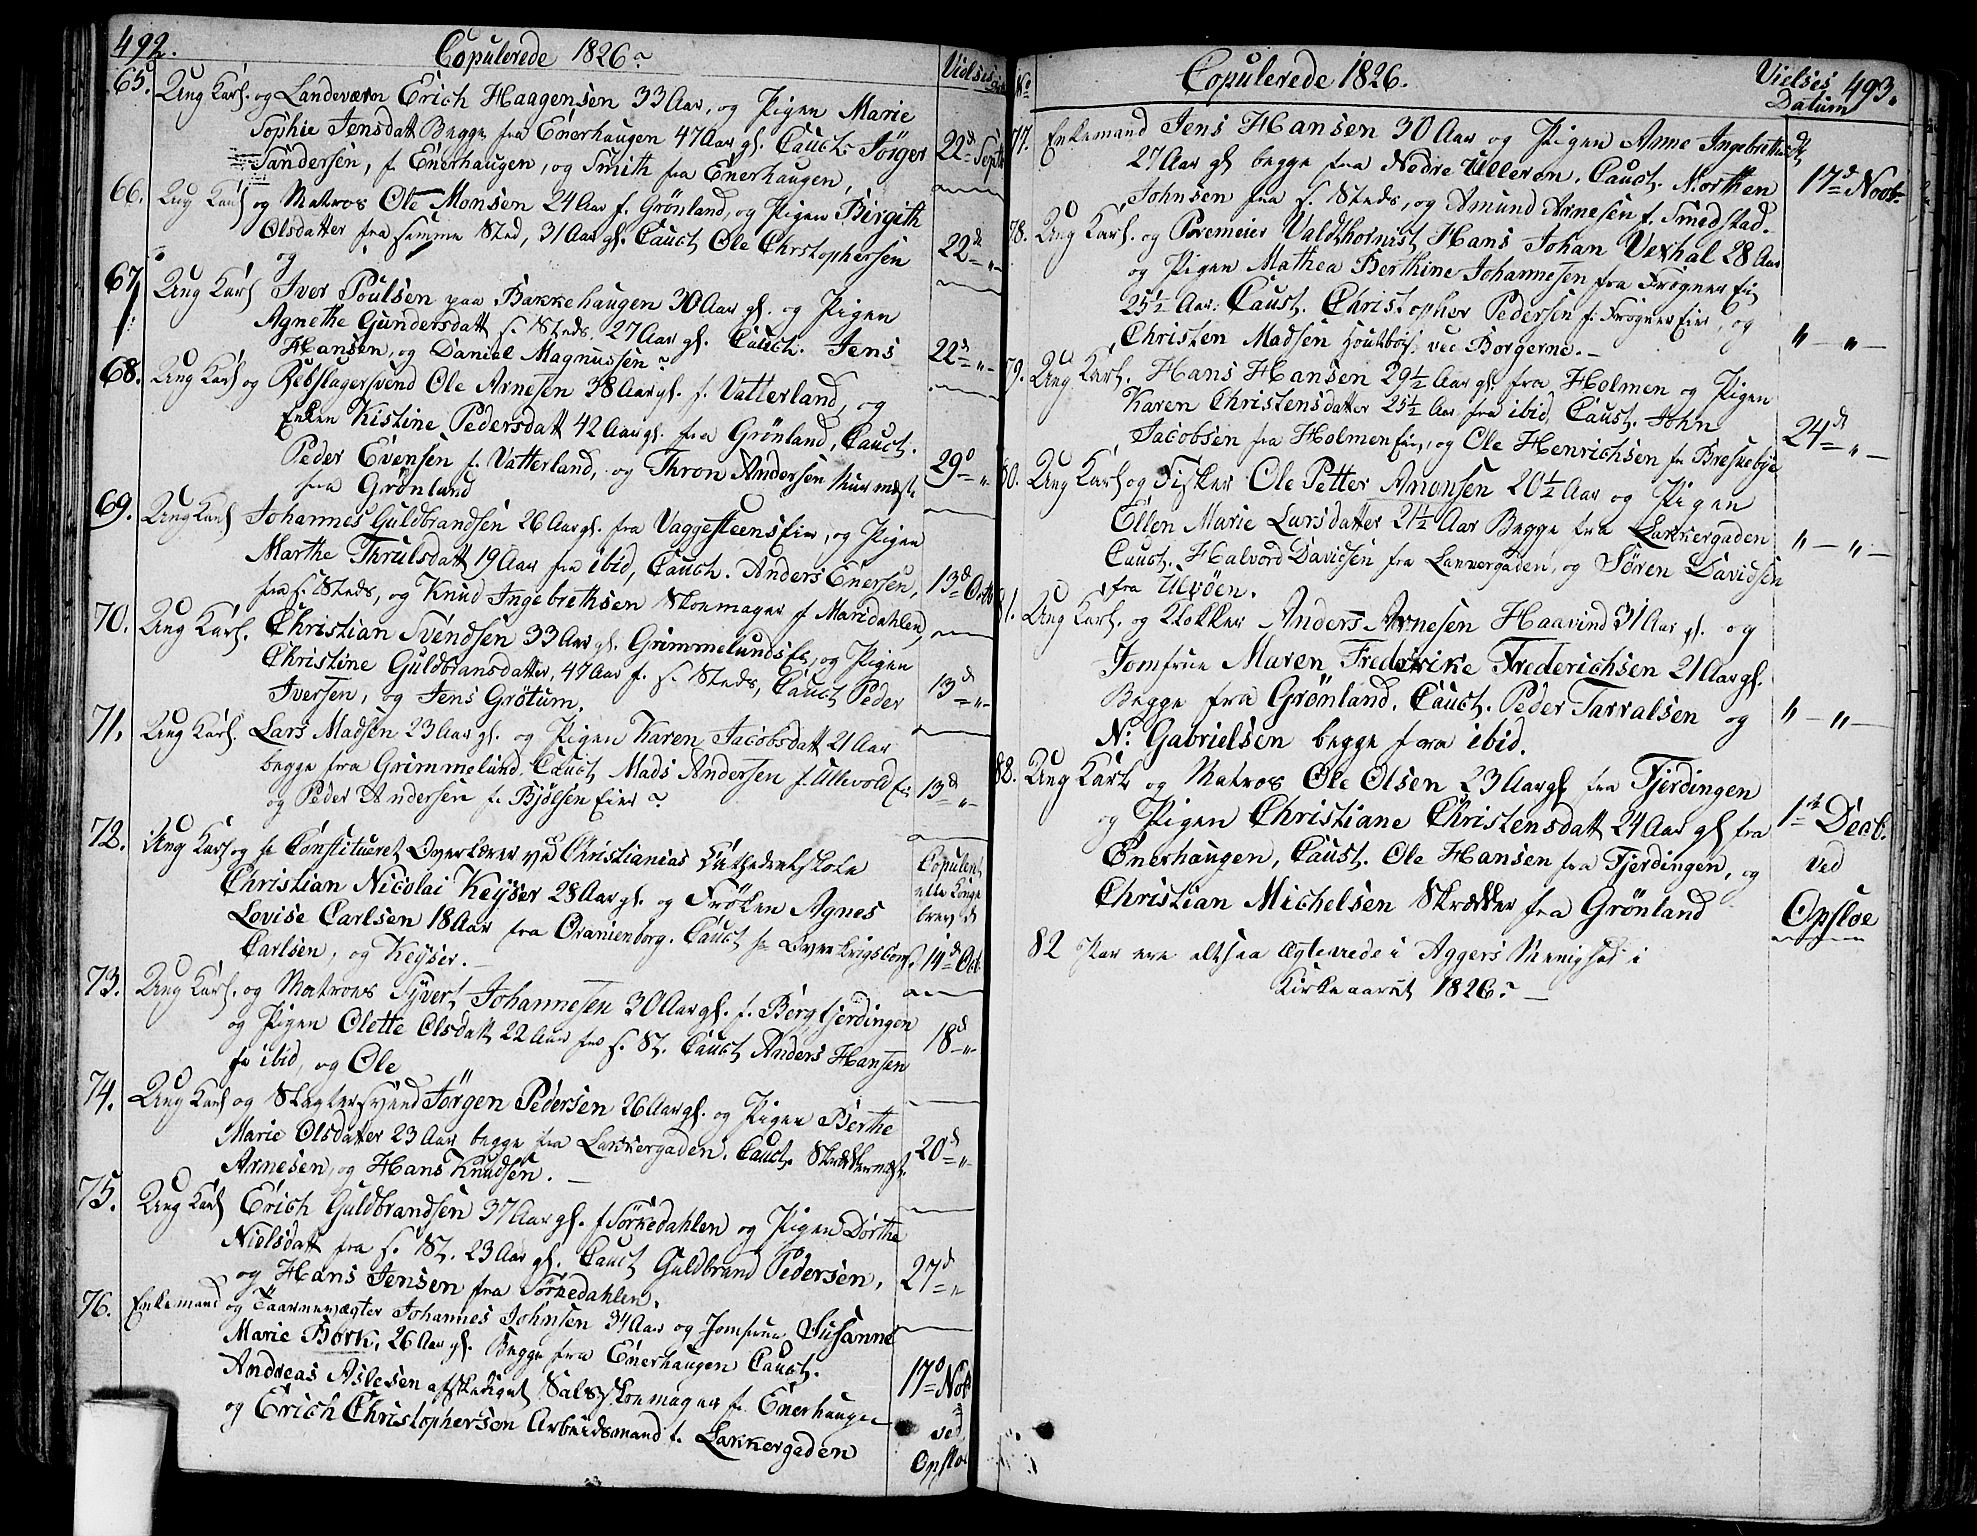 492. Copulerede 1826. Vielses
65. Ung Karl. og Landeværn Erich Haagensen 33 Aar, og Pigen Marie
Sophie Jensdatt Begge fra Enerhaugen 47 Aar gl. Cauct. Jörger
Sandersen, f. Enerhaugen, og Smith fra Enerhaugen, 22d Sept
66. Ung Karl og Matros Ole Monsen 24 Aar f. Grönland, og Pigen Birgith
Olsdatter fra samme Sted, 31 Aar gl. Cauct Ole Christophersen 22de "
og
67 Ung Karl Iver Poulsen paa Bakkehaugen 30 Aar gl. og Pigen
Agnethe Gundersdatt s. Steds, 27 Aar gl. Cauct. Jens
Hansen, og Daniel Magnussen 22d "
68. Ung Karl og Rebslagersvend Ole Arnesen 38 Aar gl. f. Vatterland, og
Enken Kistine Pedersdatt 42 Aar gl. fra Grönland, Cauct.
Peder Evensen f. Vatterland, og Thron Andersen Murmest.
fra Grönland 29d "
69. Ung Karl Johannes Guldbrandsen 26 Aar gl. fra Vaggesteens Eie, og Pigen
Marthe Thrulsdatt 19 Aar fra ibid, Cauct. Anders Enersen,
fra s. Steds, og Knud Ingebrethsen Skomager f Maridahlen 13d Octb
70. Ung Karl. Christian Svendsen 33 Aar gl. Grimmelunds Ei, og Pigen
Christine Guldbransdatter, 47 Aar f. s. Steds, Cauct Peder
Iversen, og Jens Grötum. 13d "
71. Ung Karl Lars Madsen 23 Aar gl. og Pigen Karen Jacobsdatt 21 Aar
begge fra Grimmelund. Cauct Mads Andersen f. Ullevold Ei
og Peder Andersen f. Bjölsen Eier 13d "
72. Ung Karl og Hr Constitueret Overlærer ved Christianias Cathedralskole
Christian Nicolai Keyser 28 Aar gl. og Fröken Agnes
Lovise Carlsen 18 Aar fra Oranienborg. Cauct Hr Overkrigscom.
Carlsen, og Keyser. Copuleret efter Konge brev d 14d Oct.
73. Ung Karl. og Matroes Syvert Johannesen 30 Aar gl. f. Bergfjerdingen
og Pigen Olette Olsdatt 22 Aar fra s. St. Cauct Anders Hansen
fr ibid, og Ole 18d "
74. Ung Karl og Slagtersvend Jörgen Pedersen 26 Aar gl. og Pigen Berthe
Marie Olsdatter 23 Aar begge fra Lakkergaden. Cauct. Skræddermest.
Arnesen, og Hans Knudsen. 20d "
75. Ung Karl Erich Guldbrandsen 37 Aar gl. f Sörkedahlen og Pigen Dorthe
Nielsdatt fra s. St. 23 Aar gl. Cauct Guldbrand Pedersen,
og Hans Jensen fra Sörkedahlen. 27d "
76. Enkemand og Taarnevægter Johannes Johnsen 34 Aar og Jomfrue Susanne
Marie Börk, 26 Aar gl. Begge fra Enerhaugen Cauct.
Andreas Aslesen afskediget Skomager fr. Enerhaugen
og Erich Christophersen Arbeidsmand f. Lakkergaden 17d Nob ved Opsloe
No Copulerede 1826. Vielses Datum 493.
77. Enkemand Jens Hansen 30 Aar og Pigen Anne Ingebrethsdt
27 Aar gl begge fra Nedre Ulleren. Cauct. Morthen
Johnsen fra s. Steds, og Amund Arnesen f. Smedstad. 17d Novb.
78. Ung Karl. og Premier Valdthornist Hans Johan Vexhal 28 Aar
og Pigen Mathea Berthine Johannesen fra Frogner Ei
25½ Aar. Cauct. Christopher Pedersen f. Frogner Eier, og
Christen Madsen Houtbois. ved Borgerne. " — " —
79. Ung Karl. Hans Hansen 29½ Aar gl. fra Holmen og Pigen
Karen Christensdatter 25½ Aar fra ibid, Cauct. John
Jacobsen fra Holmen Eie, og Ole Henrichsen fr Breskebye 24d " —
80. Ung Karl og Fisker Ole Petter Amonsen 20½ Aar og Pigen
Ellen Marie Larsdatter 21½ Aar Begge fra Lakkergaden
Cauct. Halvord Davidsen fra Lakkergaden, og Sören Davidsen
fra Ulvöen. " — " —
81. Ung Karl. og Klokker Anders Arnesen Haavind 31 Aar gl. og
Jomfrue Maren Frederike Frederichsen 21 Aar gl.
Begge fra Grönland. Cauct. Peder Tarralsen og
N: Gabrielsen begge fra ibid. " — " —
82. Ung Karl og Matros Ole Olsen 23 Aar gl fra Fjerdingen
og Pigen Christiane Christensdatt 24 Aar gl fra
Enerhaugen, Cauct. Ole Hansen fra Fjerdingen, og
Christian Michelsen Skrædder fra Grönland 1st Decb. ved Opsloe
82 Par ere altsaa Ægteviede i Aggers Menighed i
Kirkeaaret 1826.